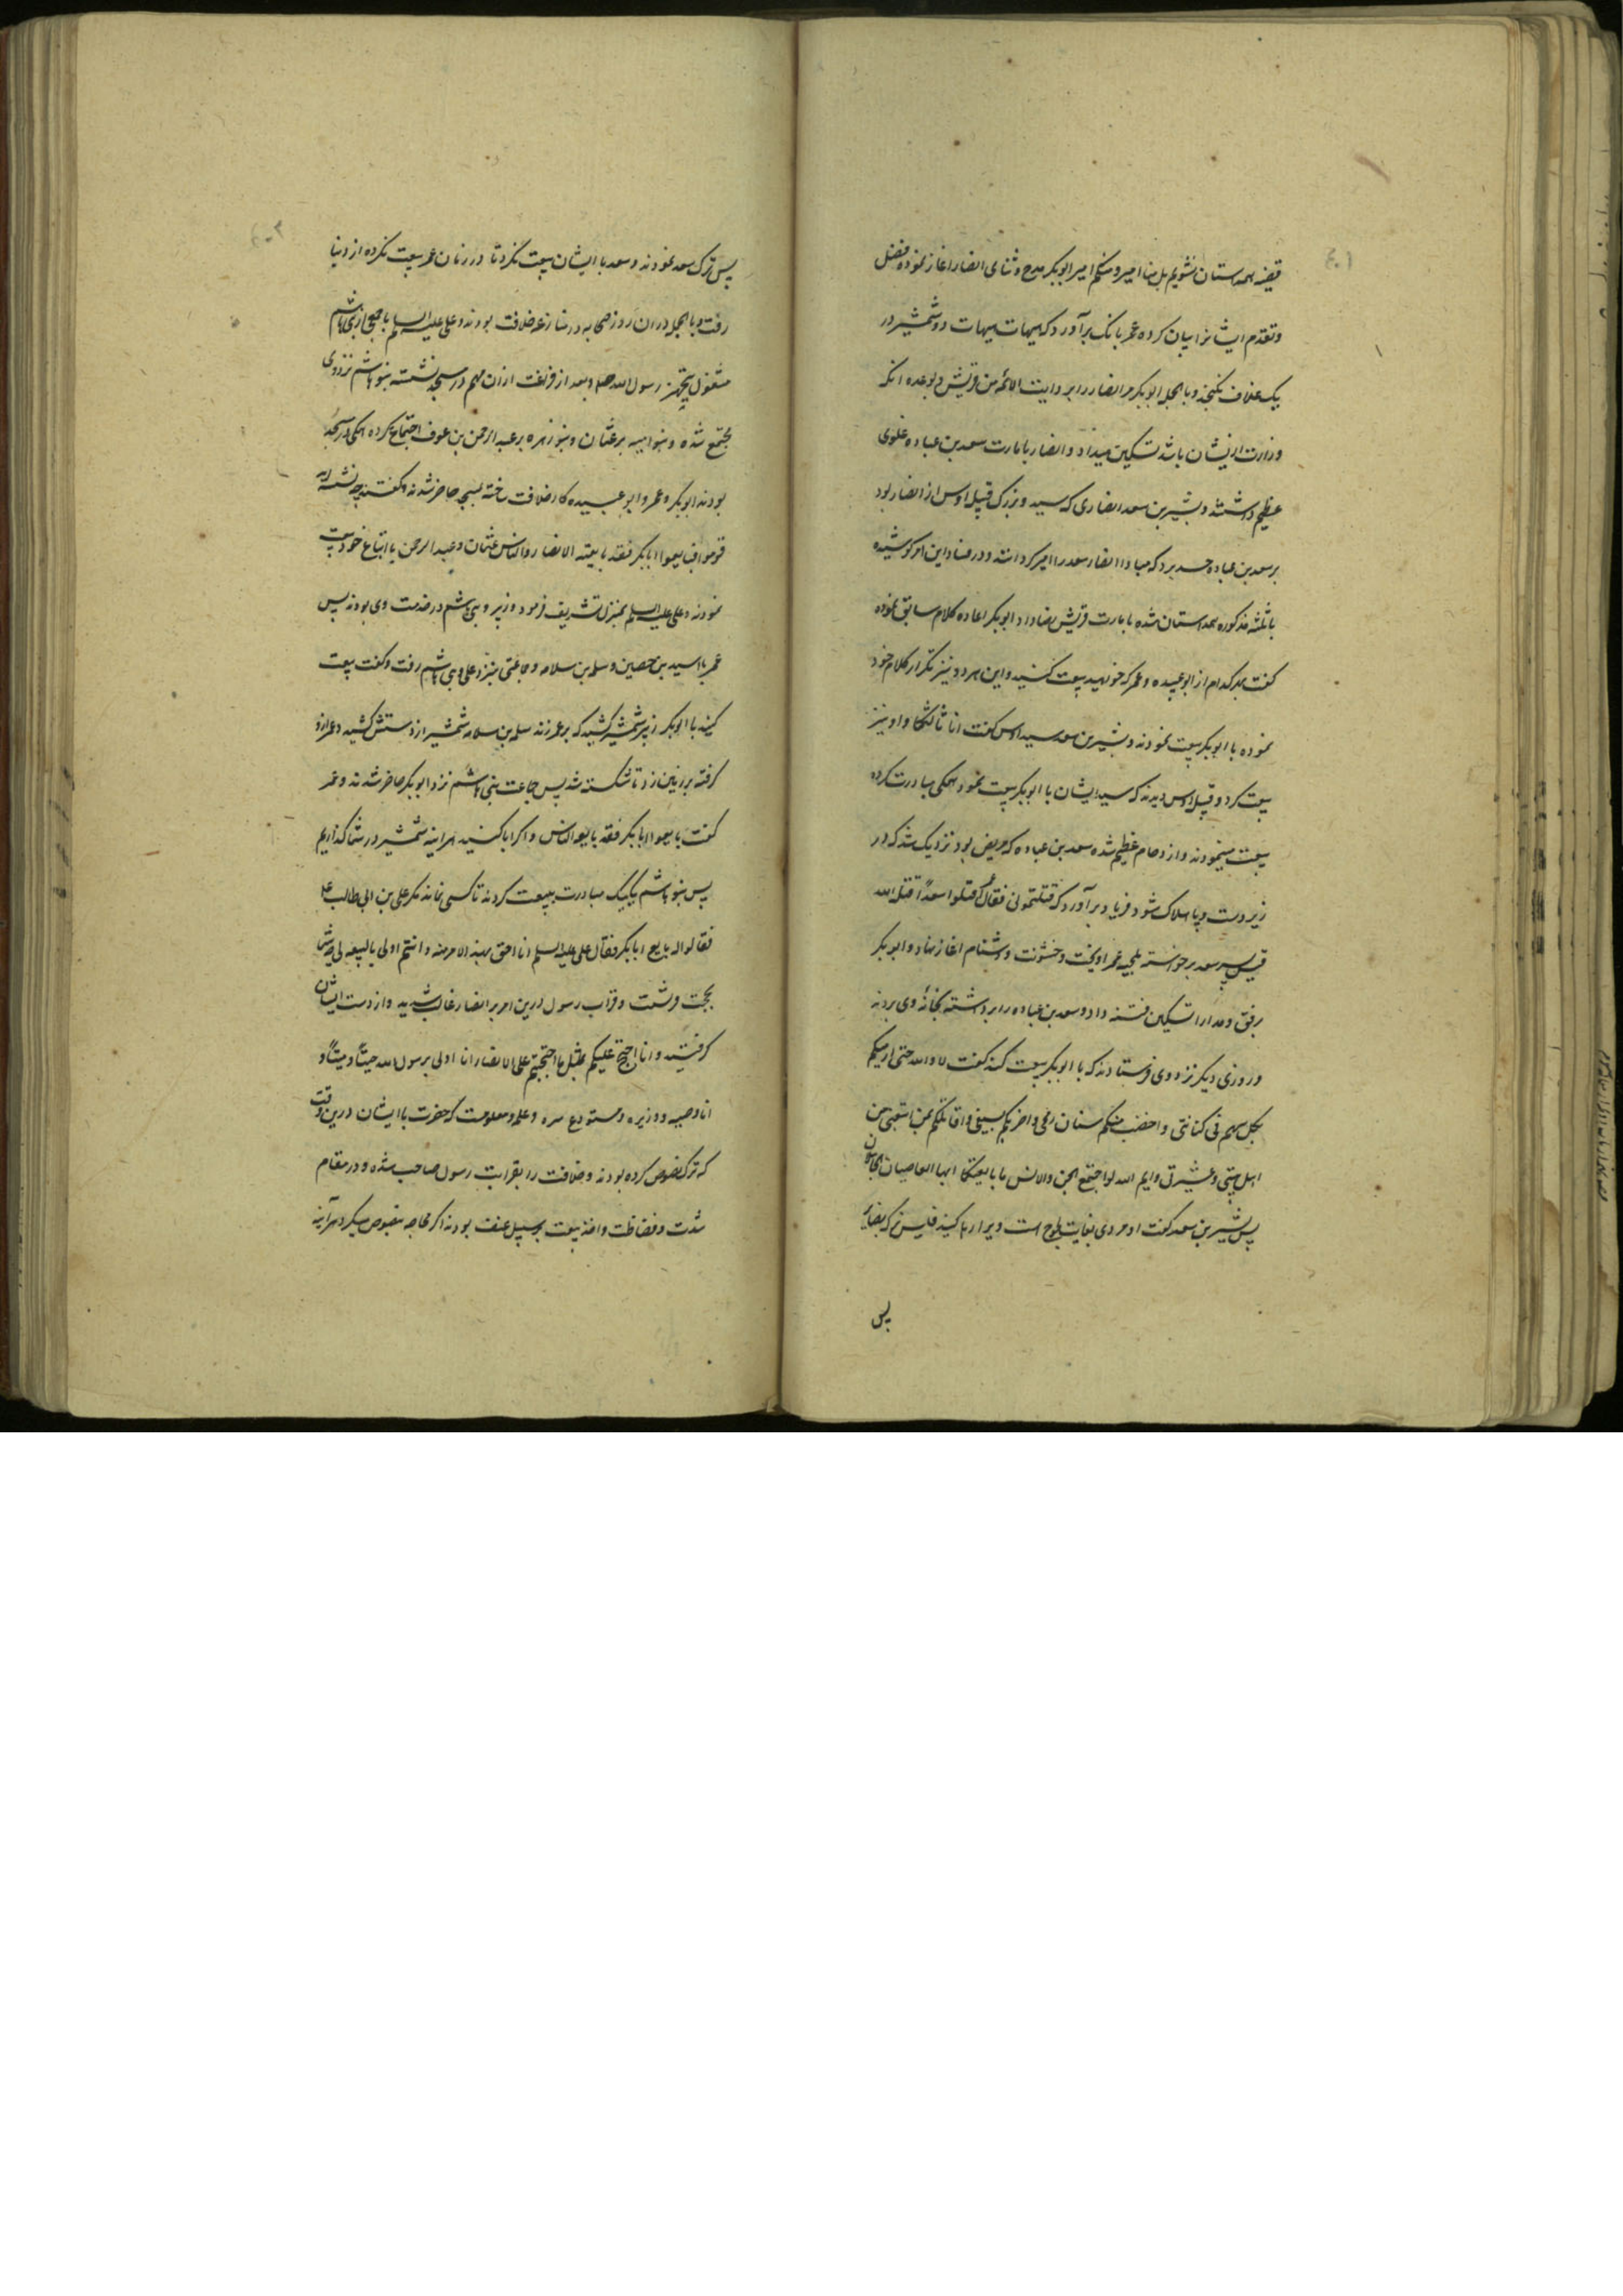 ٤٠١
قضیه همداستان نشویم بل منا امیر و منکم امیر ابوبکر مدح و ثنای انصار اغاز نموده فضل
و تقدم ایشانرا بیان کرده عمر بانک برآورد که هیهات هیهات دو شمشیر در
یک غلاف نکنجد و بالجمله ابوبکر مر انصار را بروایت الائمه من قریش و بوعده انکه
وزارت از ایشان باشد تسکین میداد و انصار بامارت سعد بن عباده غلوی
عظیم داشتند و بشیر بن سعد انصاری که سید و بزرک قبیله اوس از انصار بود
بر سعد بن عباده حسد برد که مبادا انصار سعد را امیر کردانند و در فساد این امر کوشیده
با ثلثه مذکوره همداستان شده بامارت قریش رضا داد ابوبکر اعاده کلام سابق نموده
کفت بهر کدام از ابو عبیده و عمر که خواهید بیعت کنید و این هر دو نیز تکرار کلام خود
نموده با ابوبکر بیعت نمودند و بشیر بن سعد سید اوس کفت انا ثالثکما و او نیز
بیعت کرد و قبیله اوس دیدند که سید ایشان با ابوبکر بیعت نمود همکی مبادرت کرده
بیعت مینمودند و ازدحام عظیم شده سعد بن عباده که مریض بود نزدیک شد که در
زیر دست و پا هلاک شود فریاد برآورد که قتلتمونی فقال عمر اقتلوا سعداً قتله الله
قیس پسر سعد برخواسته بلحیه عمر اویخت و خشونت و دشنام اغاز نهاد و ابوبکر
برفق و مدارا تسکین فتنه داد و سعد بن عباده را برداشته بخانهٔ وی بردند
و روزی دیکر نزد وی فرستادند که با ابوبکر بیعت کند کفت لا والله حتی ارمیکم
بکل سهم فی کنانتی و اخضب منکم سنان رمحی و اضربکم بسیفی و اقاتلکم بمن اتبعنی من
اهل بیتی و عشیرتی و ایم الله لو اجتمع الجن و الانس ما بایعتکما ایها العاصیان
پس بشیر بن سعد کفت او مردی بغایت لجوج است ویرا رها کنید فلیس ترکه بضایر
پس
٤٠٢
پس ترک سعد نمودند و سعد با ایشان بیعت نکرد تا در زمان عمر بیعت نکرده از دنیا
رفت و بالجمله دران روز صحابه در منازعه خلافت بودند و علی علیه السلم با جمعی از بنی هاشم
مشغول بتجهیز رسول الله صلعم و بعد از فراغت ازان مهم در مسجد نشسته بنو هاشم نزد وی
مجتمع شده و بنو امیه بر عثمان و بنو زهره بر عبد الرحمن بن عوف اجتماع کرده همکی در مسجد
بودند ابوبکر و عمر و ابو عبیده کار خلافت ساخته بمسجد حاضر شدند و کفتند چه نشسته اید
قوموا فبایعوا ابابکر فقد بایعته الانصار و الناس عثمان و عبد الرحمن با اتباع خود بیعت
نمودند و علی علیه السلم بمنزل تشریف فرمود و زبیر و بنی هاشم در خدمت وی بودند پس
عمر با اسید بن حصین و سلمه بن سلامه و جماعتی بنزد علی و بنی هاشم رفت و کفت بیعت
کنید با ابوبکر زبیر شمشیر کشید که بر عمر زند سلمه بن سلامه شمشیر از دستش کشید و عمر ازو
کرفته بر زمین زد تا شکسته شد پس جماعت بنی هاشم نزد ابوبکر حاضر شدند و عمر
کفت بایعوا ابابکر فقد بایعه الناس و اکر ابا کنید هراینه شمشیر در شما کذاریم
پس بنو هاشم یکیک مبادرت ببیعت کردند تا کسی نماند مکر علی بن ابی طالب ع
فقالوا له بایع ابابکر فقال علی علیه السلم انا احق بهذا الامر منه و انتم اولی بالبیعه لی شما
بحجت قرشیت و قرابت رسول درین امر بر انصار غالب شدید و از دست ایشان
کرفتید و انا احتج علیکم بمثل ما احتججتم علی الانصار انا اولی برسول الله حیّاً و میتاً و
انا وصیه و وزیره و مستودع سره و علمه و معلومست که حضرت با ایشان درین وقت
که ترک نصوص کرده بودند و خلافت را بقرابت رسول صاحب شده و در مقام
شدت و فضاظت و اخذ بیعت بر سبیل عنف بودند اکر محاجه بنصوص میکرد هرآینه